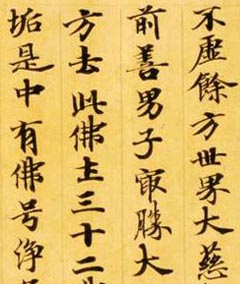 不虛餘方世界大慈
前善男子㝡勝大
方去此佛土三十二
垢是中有佛号淨